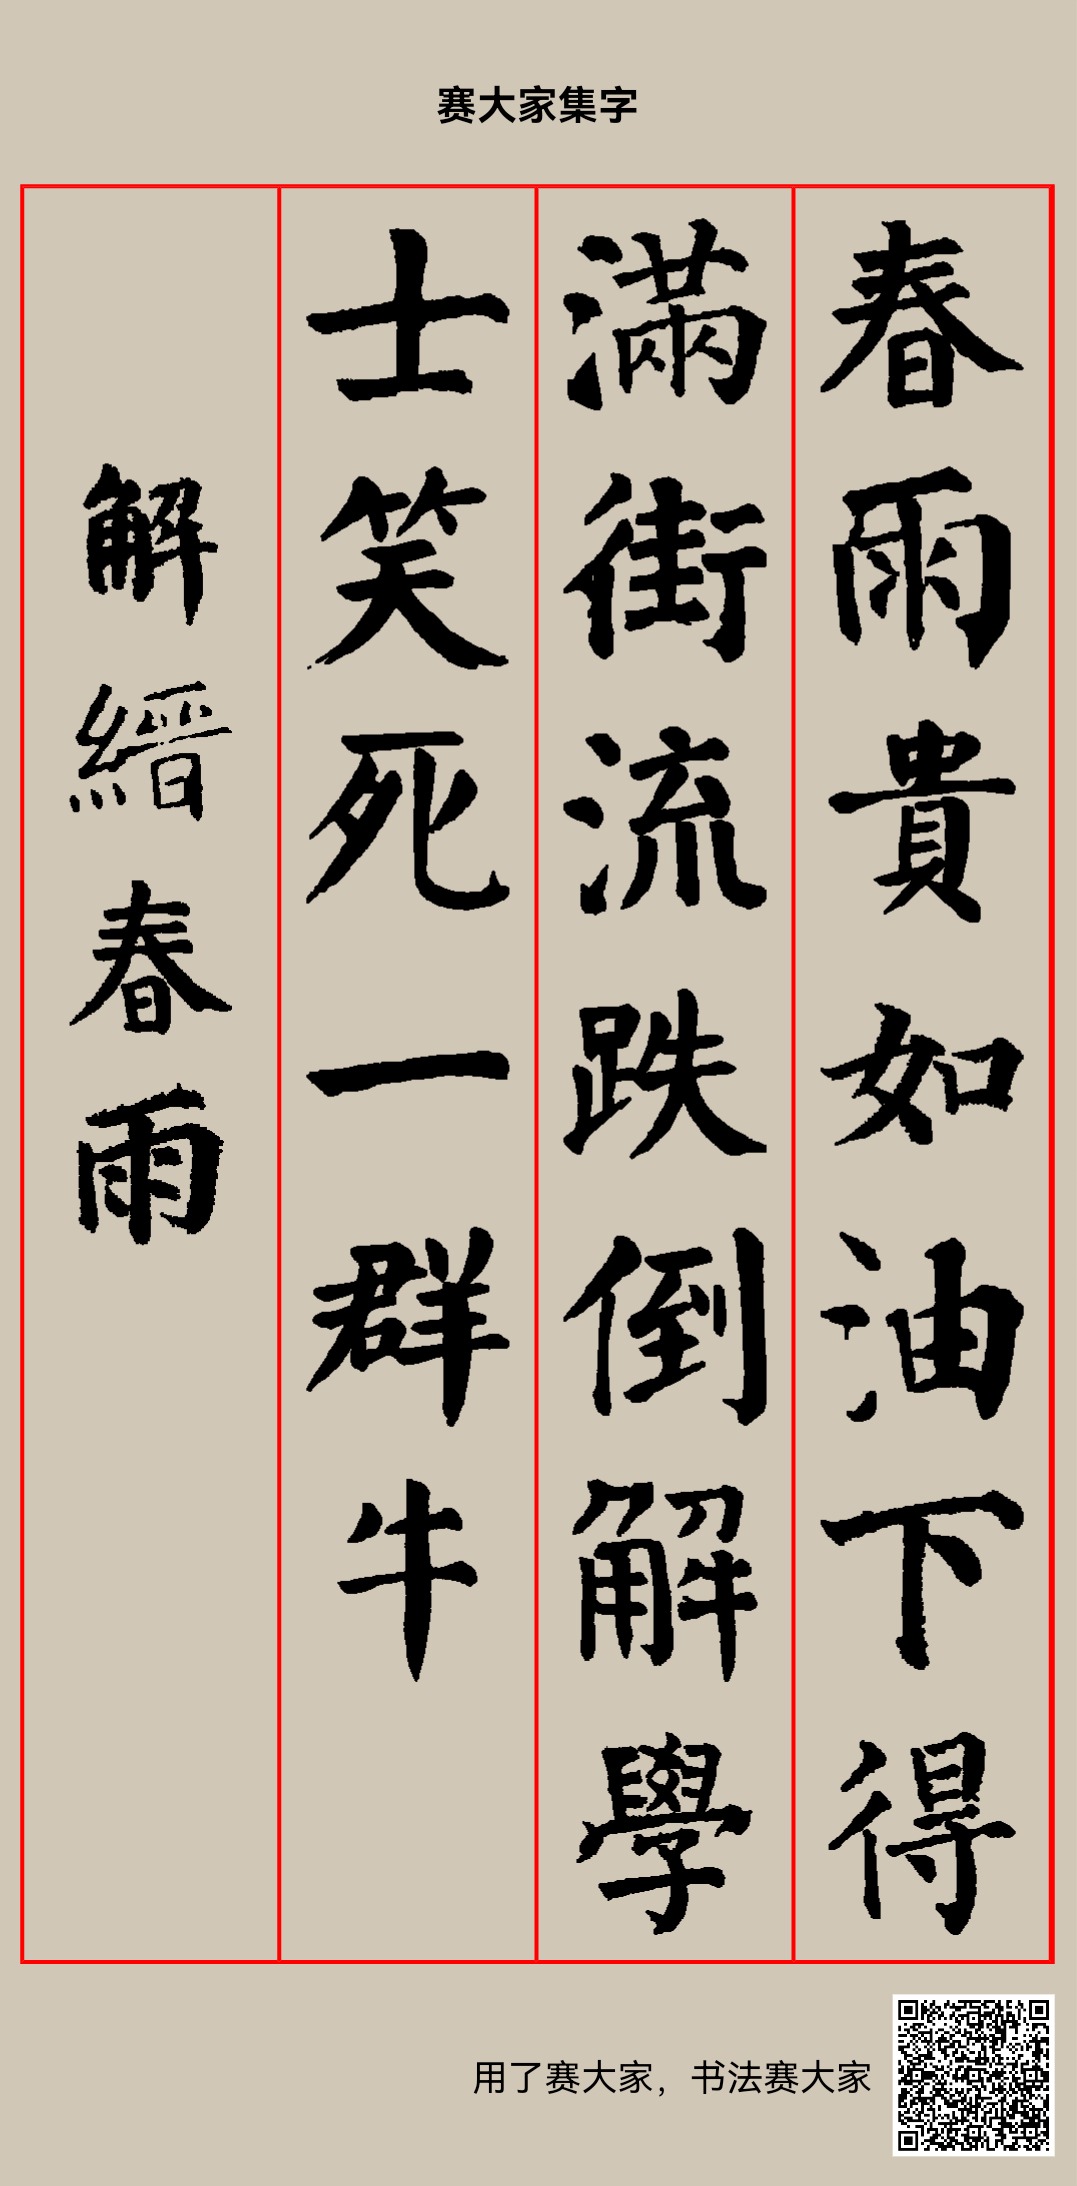 赛大家集字
春雨貴如油下得
滿街流跌倒解學
士笑死一群牛
解縉春雨
用了赛大家，书法赛大家